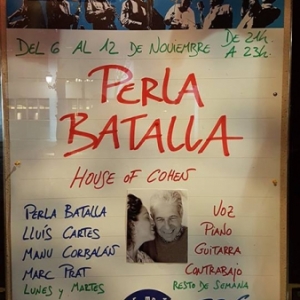 DEL 6 AL 12 DE NOVIEMBRE DE 21h A 23h.
PERLA
BATALLA
HOUSE OF COHEN
PERLA BATALLA VOZ
LLUÍS CARTES PIANO
MANU CORBALÁN GUITARRA
MARC PRAT CONTRABAJO
LUNES Y MARTES RESTO DE SEMANA